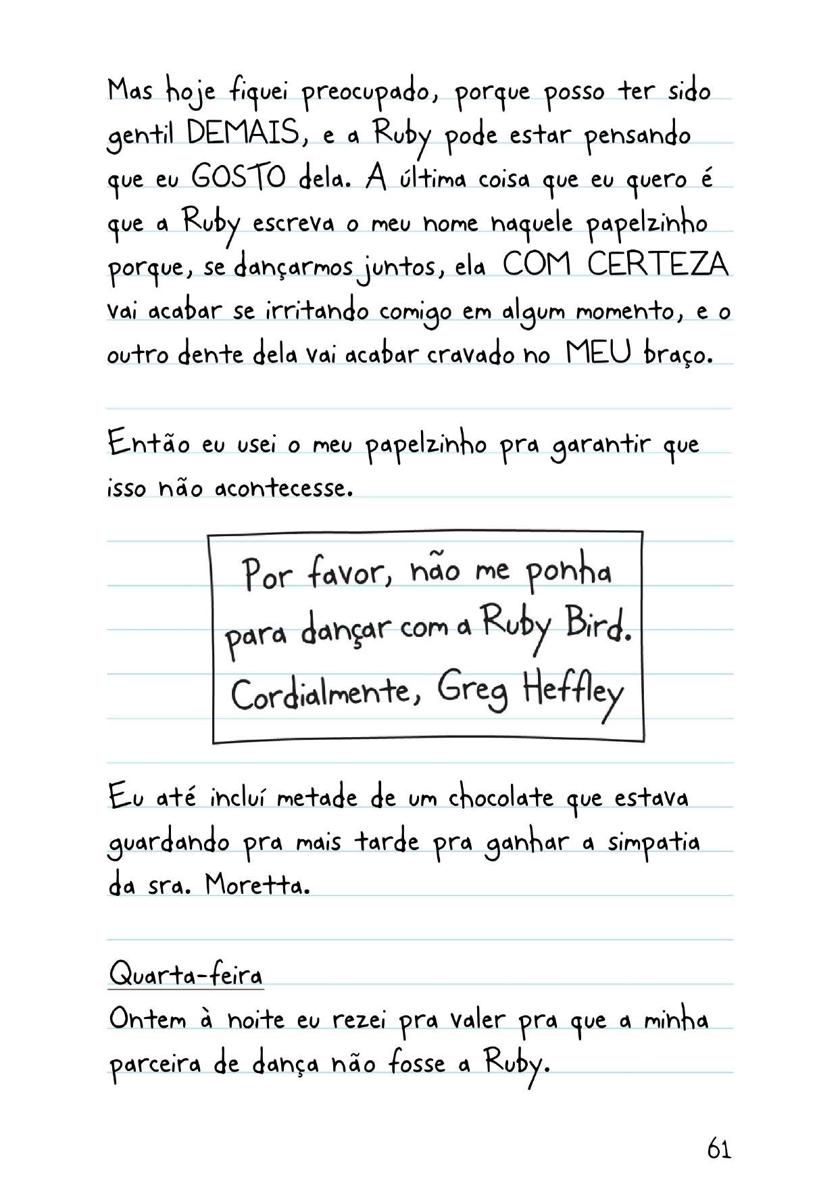 Mas hoje fiquei preocupado, porque posso ter sido
gentil DEMAIS, e a Ruby pode estar pensando
que eu GOSTO dela. A última coisa que eu quero é
que a Ruby escreva o meu nome naquele papelzinho
porque, se dançarmos juntos, ela COM CERTEZA
vai acabar se irritando comigo em algum momento, e o
outro dente dela vai acabar cravado no MEU braço.
Então eu usei o meu papelzinho pra garantir que
isso não acontecesse.
Por favor, não me ponha
para dançar com a Ruby Bird.
Cordialmente, Greg Heffley
Eu até incluí metade de um chocolate que estava
guardando pra mais tarde pra ganhar a simpatia
da sra. Moretta.
Quarta-feira
Ontem à noite eu rezei pra valer pra que a minha
parceira de dança não fosse a Ruby.
61